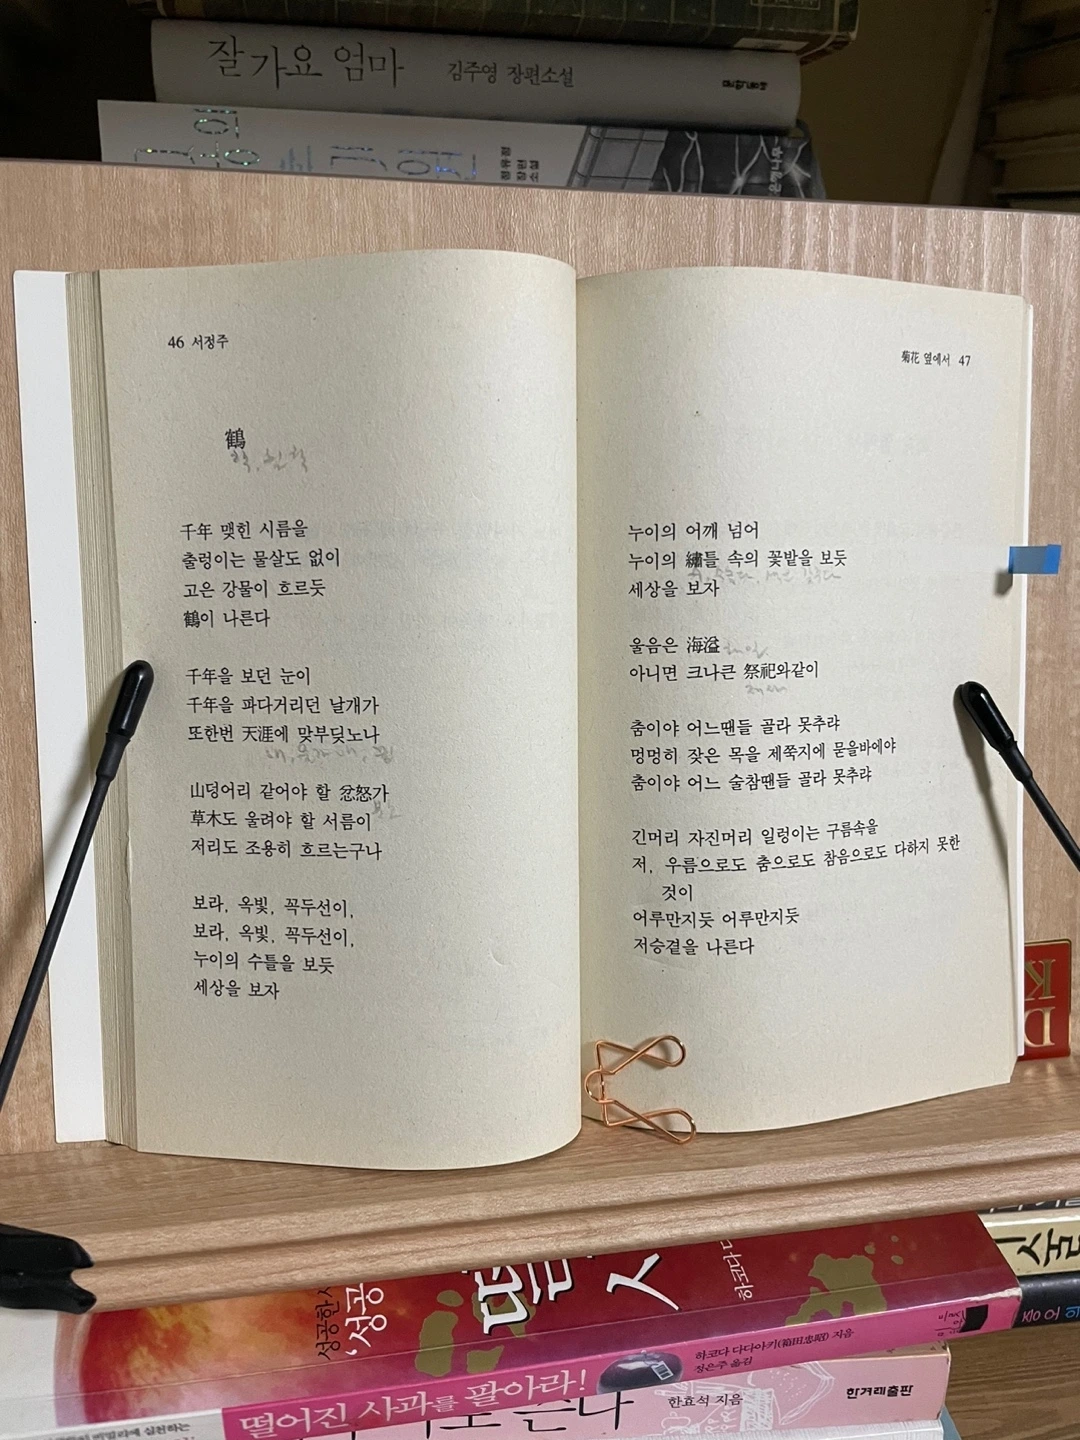 잘가요 엄마 김주영 장편소설 문학동네
정유정 장편소설
은행나무
46 서정주
鶴
학,
千年 맺힌 시름을
출렁이는 물살도 없이
고은 강물이 흐르듯
鶴이 나른다
千年을 보던 눈이
千年을 파다거리던 날개가
또한번 天涯에 맞부딪노나
山덩어리 같어야 할 忿怒가
분노
草木도 울려야 할 서름이
저리도 조용히 흐르는구나
보라, 옥빛, 꼭두선이,
보라, 옥빛, 꼭두선이,
누이의 수틀을 보듯
세상을 보자
菊花 옆에서 47
누이의 어깨 넘어
누이의 繡틀 속의 꽃밭을 보듯
세상을 보자
울음은 海溢
해일
아니면 크나큰 祭祀와같이
제사
춤이야 어느땐들 골라 못추랴
멍멍히 잦은 목을 제쭉지에 묻을바에야
춤이야 어느 술참땐들 골라 못추랴
긴머리 자진머리 일렁이는 구름속을
저, 우름으로도 춤으로도 참음으로도 다하지 못한
것이
어루만지듯 어루만지듯
저승곁을 나른다
DK
성공한
'성공
하코다 다
하코다 다다아키(箱田忠昭) 지음
정은주 옮김
떨어진 사과를 팔아라!
한효석 지음
한겨레출판